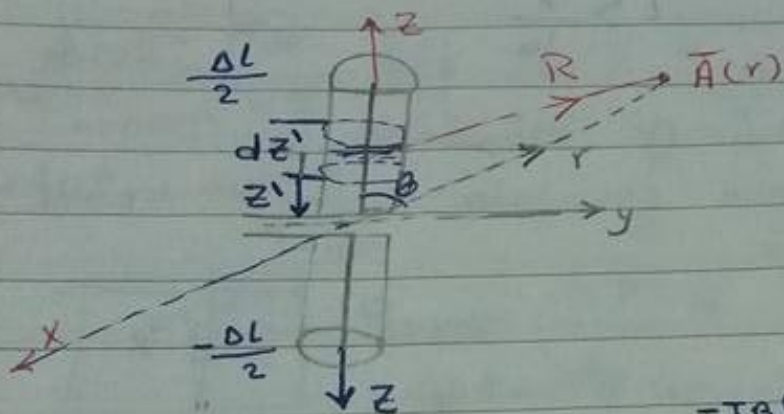 z
ΔL/2
R
Ā(r)
dz'
r
z'
θ
y
x
-ΔL/2
z